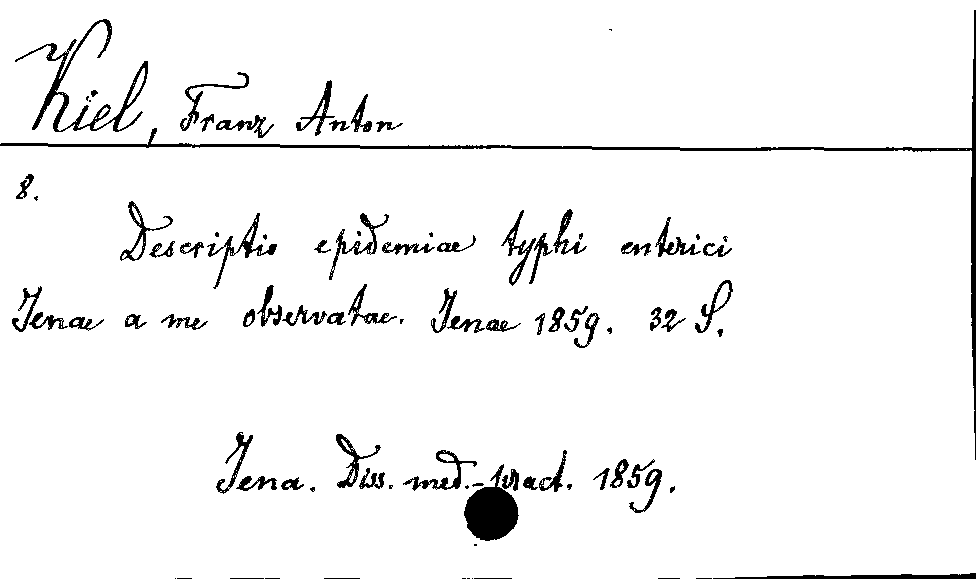 Kiel, Franz Anton
8.
Descriptio epidemiae typhi enterici
Jenae a me observatae. Jenae 1859. 32 S.
Jena. Diss. med.-pract. 1859.